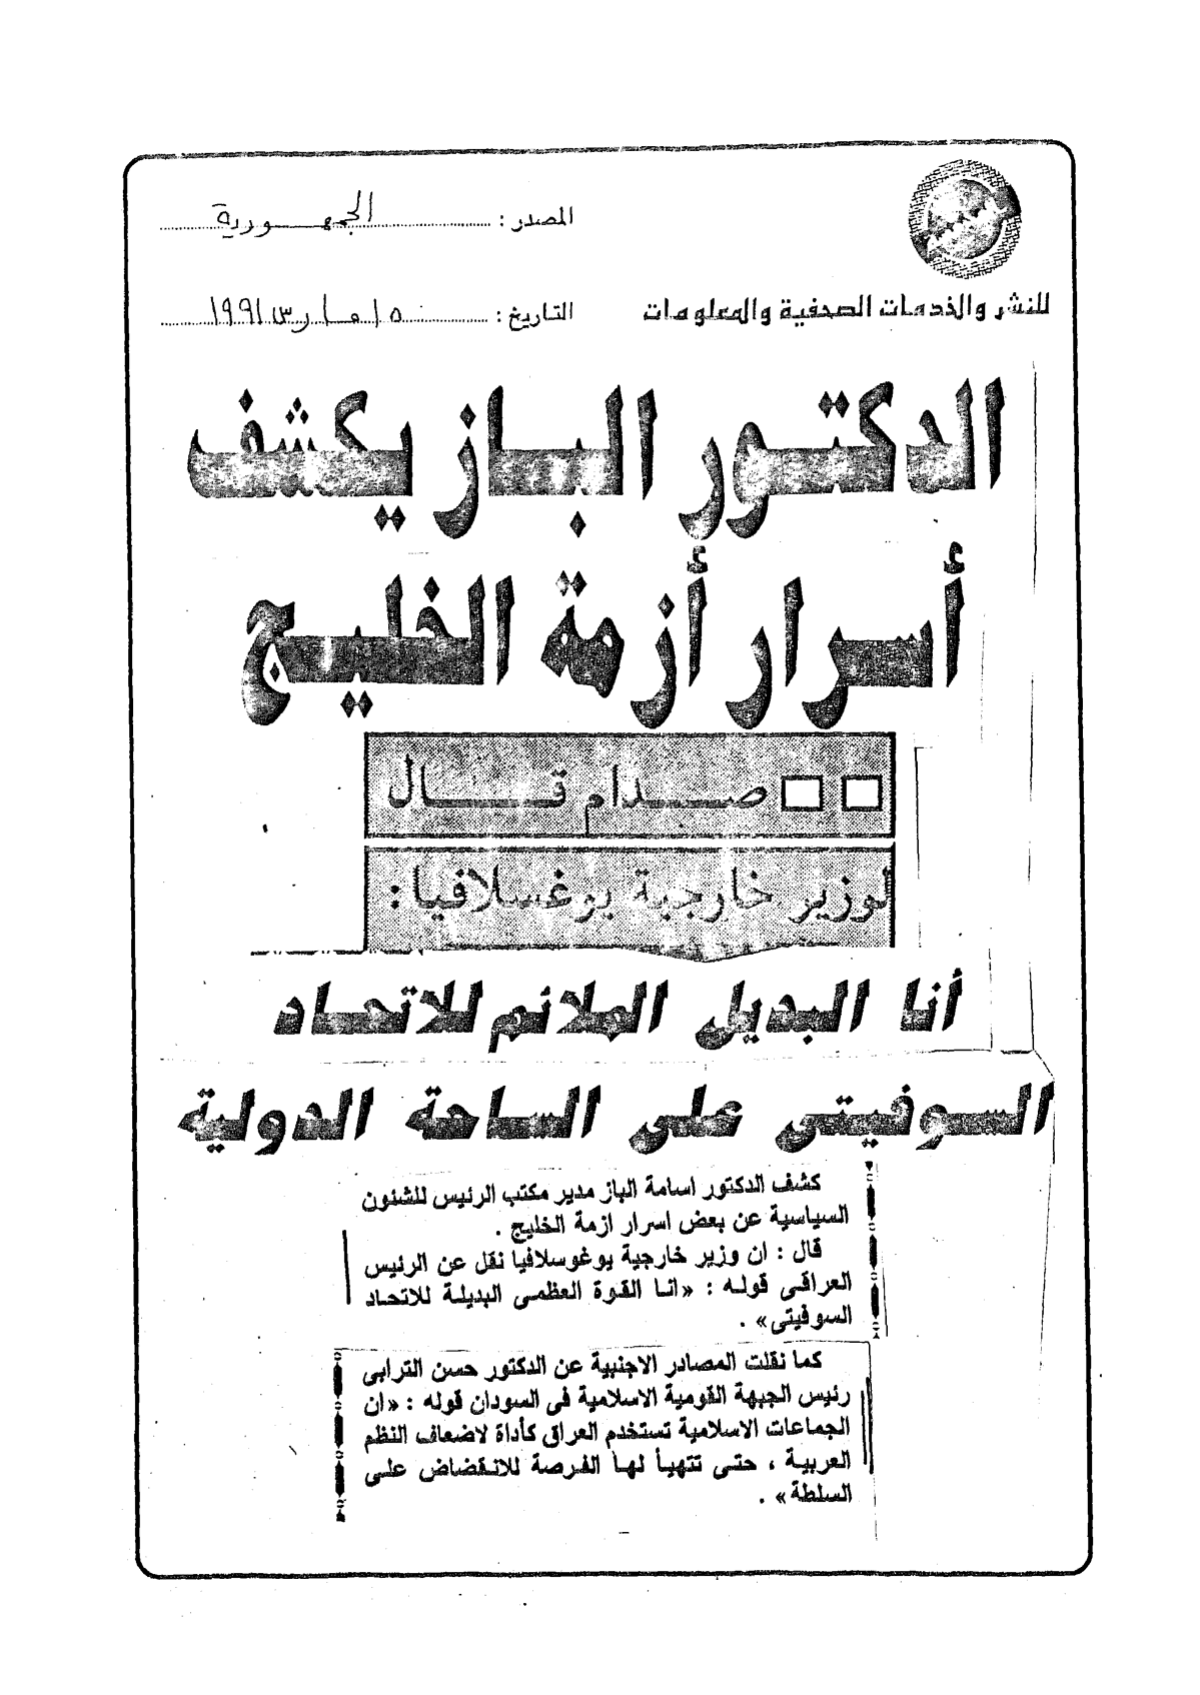 المصدر : الجمهورية
للنشر والخدمات الصحفية والمعلومات
التاريخ : ١٥ مارس ١٩٩١
الدكتور الباز يكشف
أسرار أزمة الخليج
صدام قال
لوزير خارجية يوغسلافيا :
أنا البديل الملائم للاتحاد
السوفيتى على الساحة الدولية
كشف الدكتور اسامة الباز مدير مكتب الرئيس للشئون
السياسية عن بعض اسرار ازمة الخليج .
قال : ان وزير خارجية يوغوسلافيا نقل عن الرئيس
العراقى قوله : «انا القوة العظمى البديلة للاتحاد
السوفيتى» .
كما نقلت المصادر الاجنبية عن الدكتور حسن الترابى
رئيس الجبهة القومية الاسلامية فى السودان قوله : «ان
الجماعات الاسلامية تستخدم العراق كأداة لاضعاف النظم
العربية ، حتى تتهيأ لها الفرصة للانقضاض على
السلطة» .